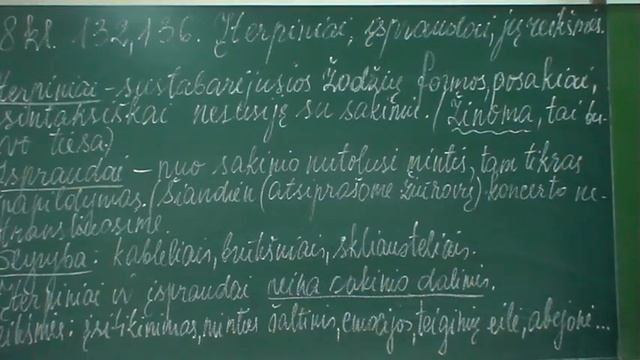 8 kl. 132, 136. Įterpiniai, įsprandai, jų reikšmės.
Įterpiniai – sustabarėjusios žodžių formos, posakiai,
sintaksiškai nesusiję su sakiniu. (Žinoma, tai bu-
vo tiesa.)
Įspraudai – nuo sakinio nutolusi mintis, tam tikras
papildymas. (Šiandien (atsiprašome žiūrovų) koncerto ne-
transliuosime.
Skyryba: kableliais, brūkšniais, skliausteliais.
Įterpiniai ir įspraudai neina sakinio dalimis.
Reikšmės: įsitikinimas, minties šaltinis, emocijos, teiginių eilė, abejonė...